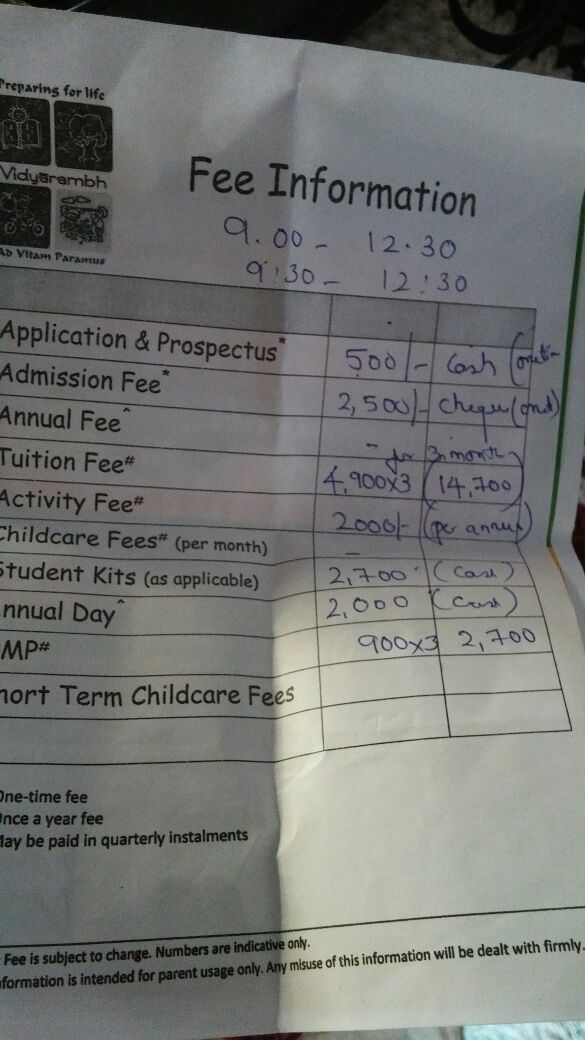 Preparing for life
Vidyarambh
Ab Vitam Paramus
Fee Information
9.00 - 12.30
9:30 - 12:30
Application & Prospectus* 500/- Cash
Admission Fee* 2,500/- cheque
Annual Fee^ -
for 3 month
Tuition Fee# 4,900x3 (14,700)
Activity Fee# 2000/- (per annum)
Childcare Fees# (per month) -
Student Kits (as applicable) 2,700 (Cash)
nnual Day^ 2,000 (Cash)
MP# 900x3 2,700
hort Term Childcare Fees
One-time fee
Once a year fee
May be paid in quarterly instalments
Fee is subject to change. Numbers are indicative only.
nformation is intended for parent usage only. Any misuse of this information will be dealt with firmly.